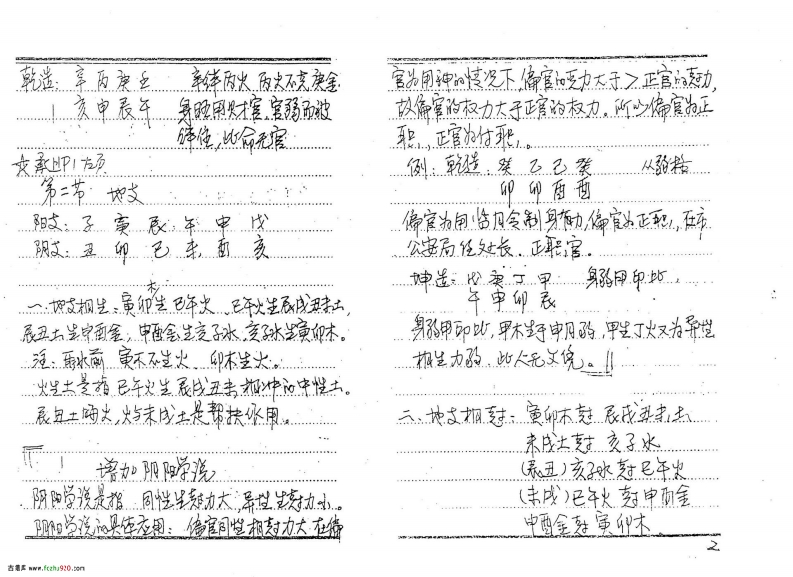 乾造：辛 丙 庚 壬　辛绊丙火 丙火不克庚金
亥 申 辰 午　身弱用财官，官弱而被
绊住，此命无官
第二节　地支
阳支：子 寅 辰 午 申 戌
阴支：丑 卯 巳 未 酉 亥
一、地支相生：寅卯木生巳午火　巳午火生辰戌丑未土，
辰丑土生申酉金，申酉金生亥子水，亥子水生寅卯木。
注：雨水前 寅木不生火　卯木生火。
火生土是指 巳午火生 辰戌丑未 中的中性土。
辰丑土晦火，火与未戌土是帮扶作用。
增加阴阳学说
阴阳学说是指　同性生克力大，异性生克力小。
阴阳学说的具体应用：偏官同性相克力大 在偏
官为用神的情况下，偏官的克力大于>正官的克力，
故偏官的权力大于正官的权力。所以偏官为正
职，正官为付职，。
例：乾造：癸 乙 己 癸　从弱格
卯 卯 酉 酉
偏官为用 当月令制身有力，偏官为正职，在市
公安局任处长。正职官。
坤造：戊 庚 丁 甲　身弱用印比
午 申 卯 辰
身弱用印比，甲木生于申月弱，甲生丁火又为异性
相生力弱。此人无文凭。
二、地支相克：寅卯木克 辰戌丑未土
未戌土克 亥子水
(辰丑)亥子水克巳午火
(未戌)巳午火 克申酉金
申酉金克 寅卯木
2
古易库 www.fczhu920.com